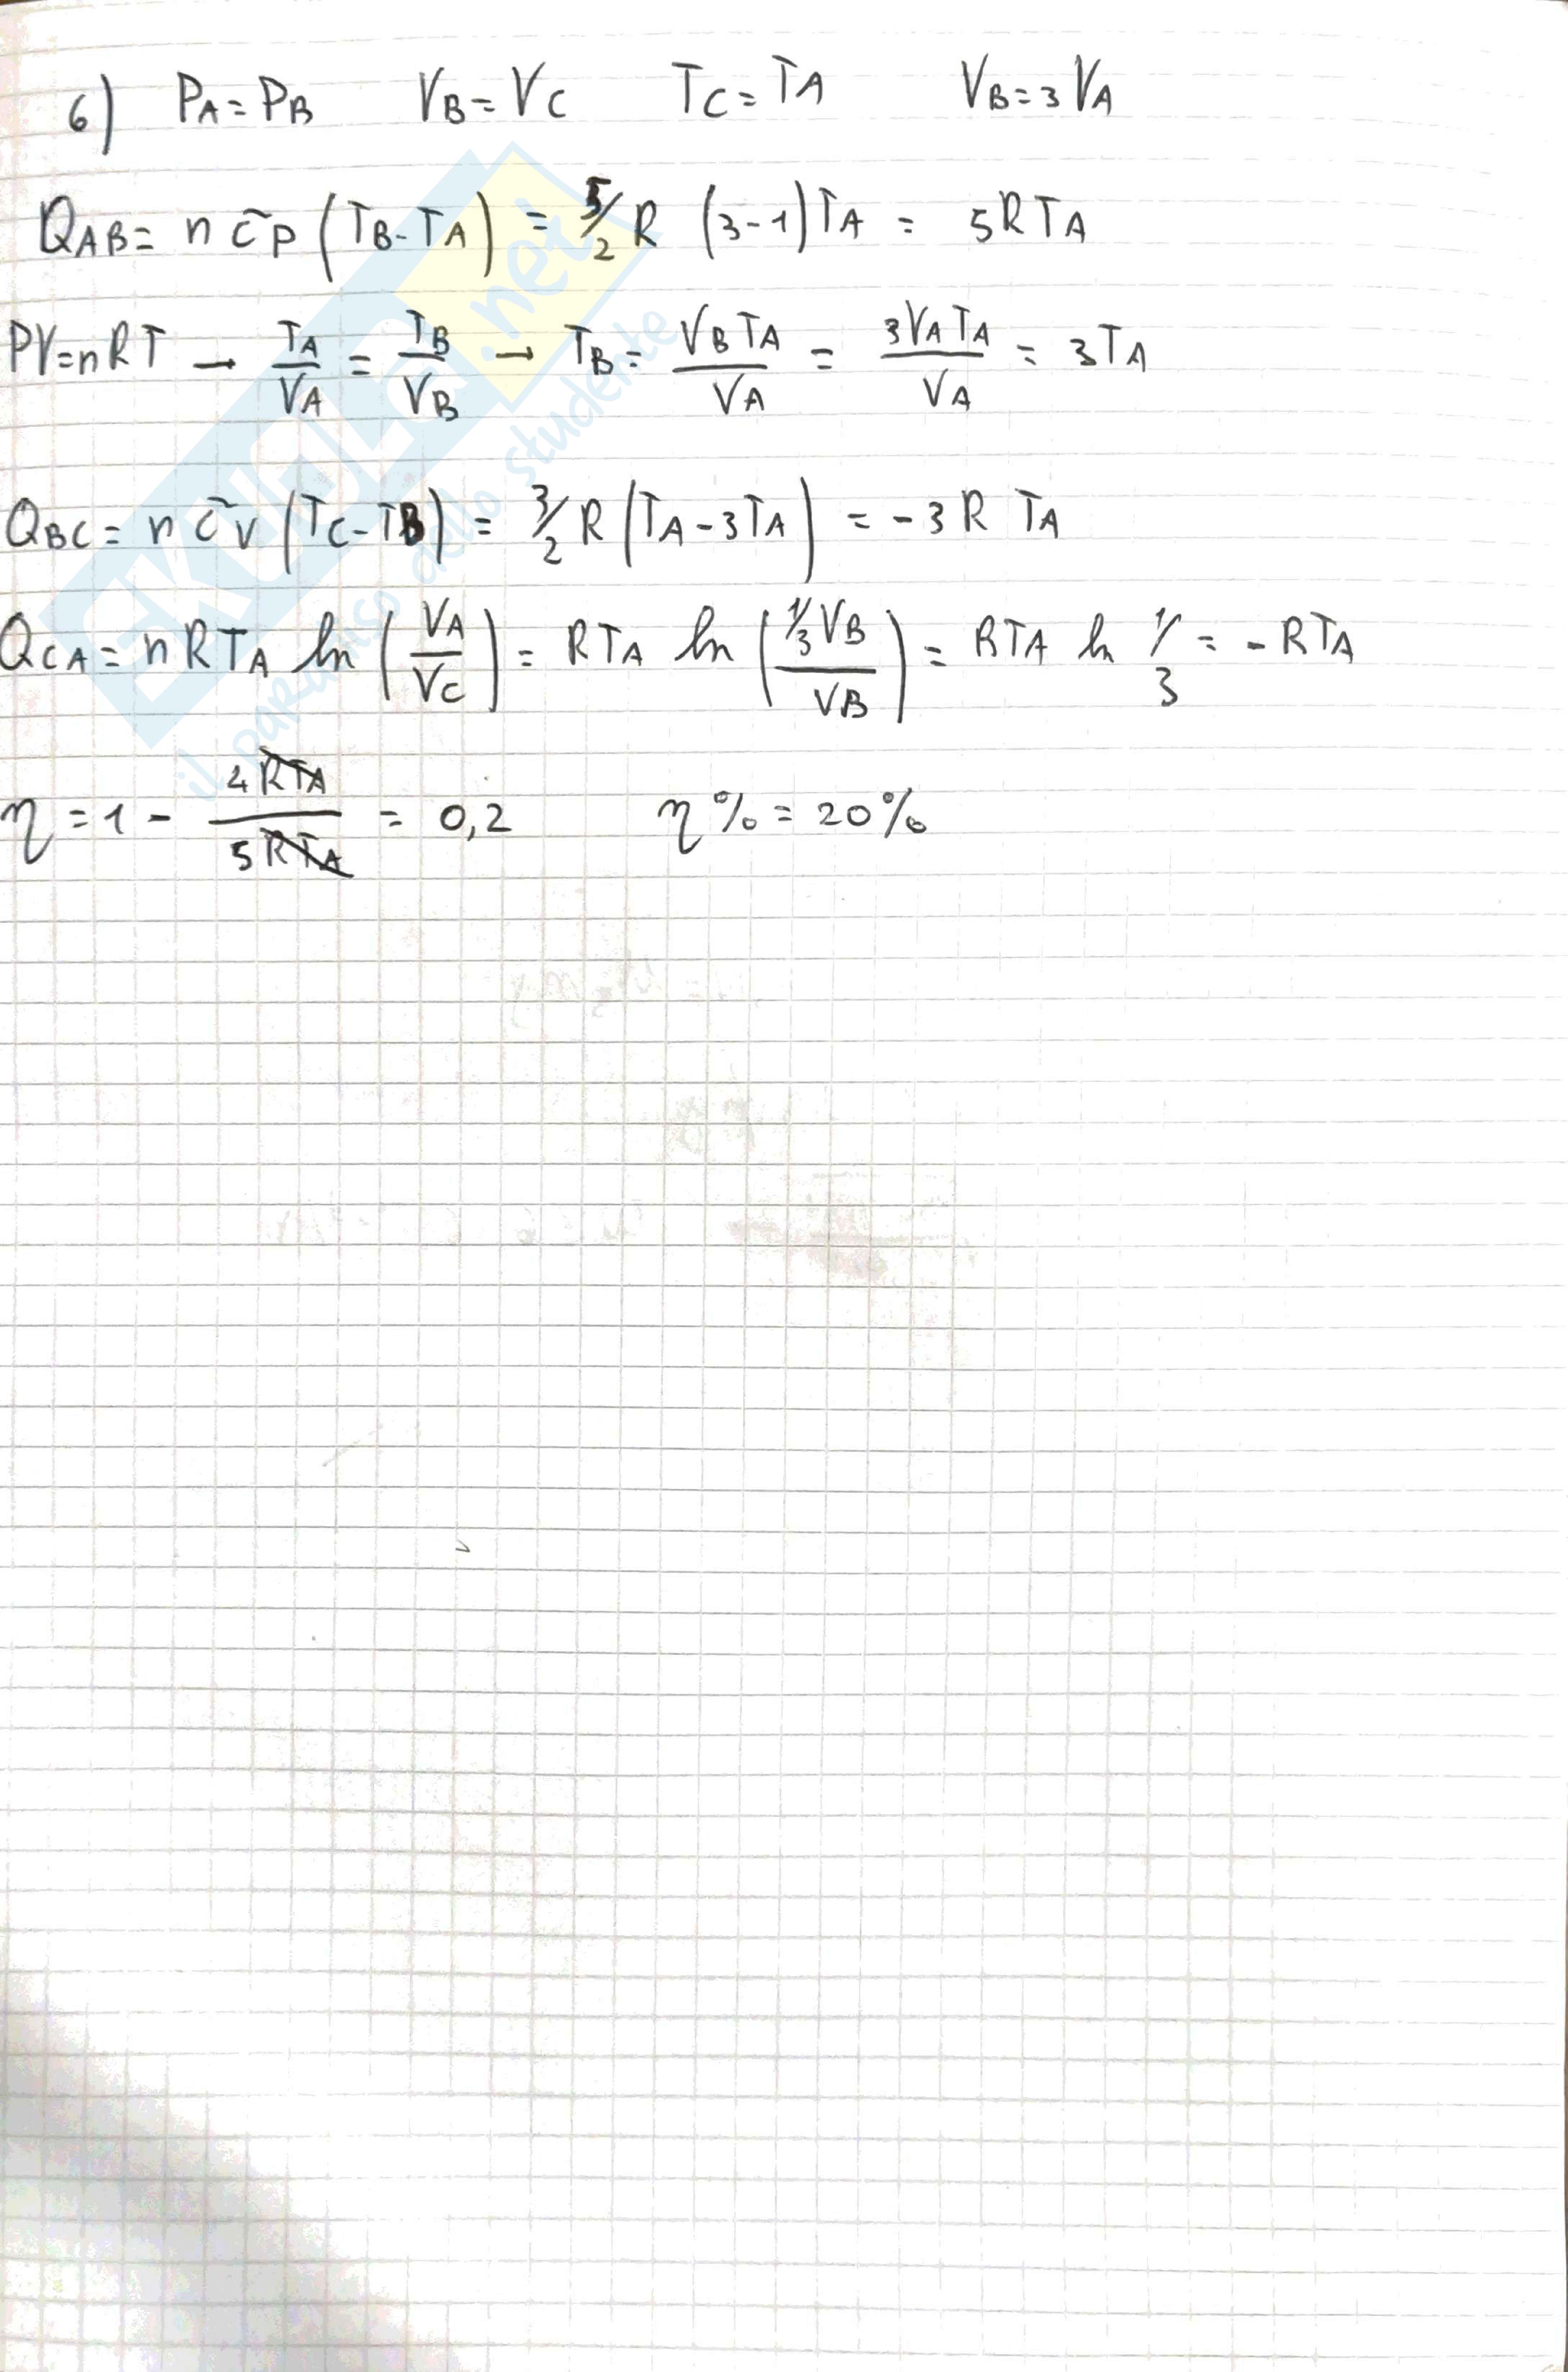 6) PA = PB VB = VC TC = TA VB = 3 VA
QAB = n c̄p (TB - TA) = 5/2 R (3-1) TA = 5RTA
PV = nRT → TA/VA = TB/VB → TB = VB TA/VA = 3VA TA/VA = 3TA
QBC = n c̄v (TC - TB) = 3/2 R (TA - 3TA) = -3 R TA
QCA = nRTA ln (VA/VC) = RTA ln (1/3 VB/VB) = RTA ln 1/3 = - RTA
η = 1 - 4RTA/5RTA = 0,2 η% = 20%
SKUOLA.net
il paradiso dello studente